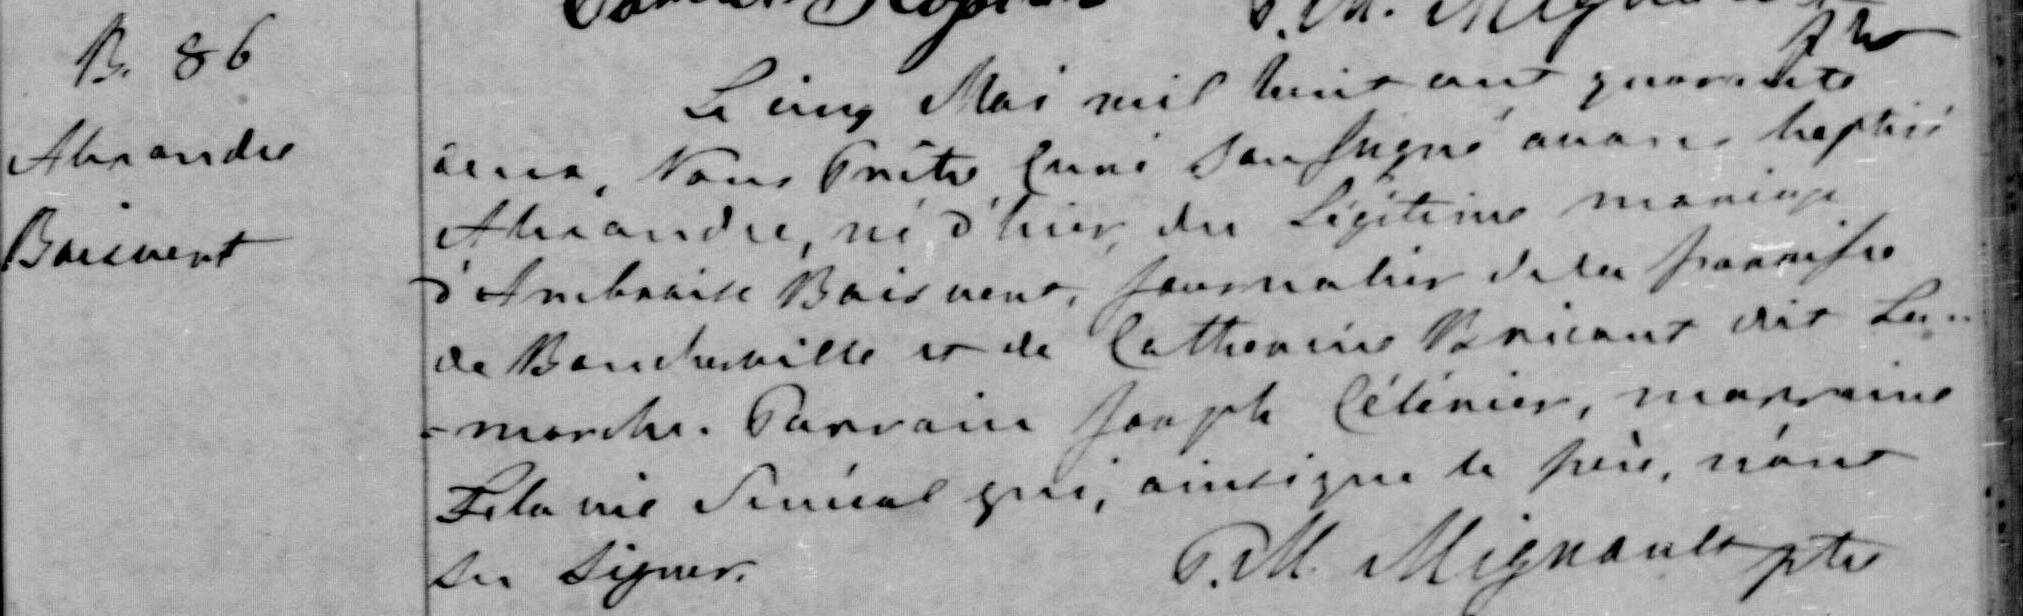 P. M. Mignault
ptre
B. 86
Alexandre
Boisvert
Le cinq Mai mil huit cent quarante
deux, Nous Prêtre Curé soussigné avons baptisé
Alexandre, né d'hier, du légitime mariage
d'Ambroise Boisvert, journalier de la paroisse
de Boucherville et de Catherine Bricaut dit La-
-marche. Parrain Joseph Célénier, marraine
Sénécal qui, ainsi que le père, n'ont
su signer.
P. M. Mignault ptre